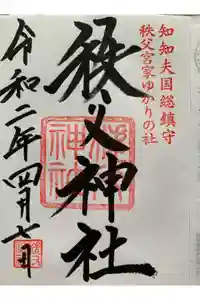 知知夫国総鎮守
秩父宮家ゆかりの社
秩父神社
令和二年四月七日